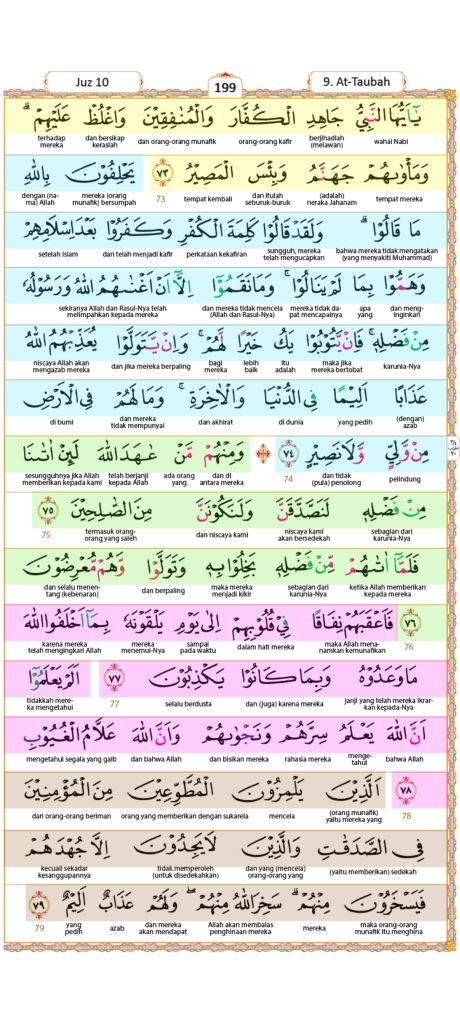 Juz 10
199
9. At-Taubah
يٰٓاَيُّهَا النَّبِيُّ جَاهِدِ الْكُفَّارَ وَالْمُنٰفِقِيْنَ وَاغْلُظْ عَلَيْهِمْۗ
wahai Nabi
berjihadlah (melawan)
orang-orang kafir
dan orang-orang munafik
dan bersikap keraslah
terhadap mereka
وَمَأْوٰىهُمْ جَهَنَّمُ وَبِئْسَ الْمَصِيْرُ ٧٣ يَحْلِفُوْنَ بِاللّٰهِ
tempat mereka
(adalah) neraka Jahanam
dan itulah seburuk-buruk
tempat kembali
73
mereka (orang munafik) bersumpah
dengan (nama) Allah
مَا قَالُوْاۗ وَلَقَدْ قَالُوْا كَلِمَةَ الْكُفْرِ وَكَفَرُوْا بَعْدَ اِسْلَامِهِمْ
bahwa mereka tidak mengatakan (yang menyakiti Muhammad)
sungguh, mereka telah mengucapkan
perkataan kekafiran
dan telah menjadi kafir
setelah Islam
وَهَمُّوْا بِمَا لَمْ يَنَالُوْاۚ وَمَا نَقَمُوْٓا اِلَّآ اَنْ اَغْنٰىهُمُ اللّٰهُ وَرَسُوْلُهٗ
dan mengинginkan
apa yang
mereka tidak dapat mencapainya
dan mereka tidak mencela (Allah dan Rasul-Nya)
sekiranya Allah dan Rasul-Nya telah melimpahkan kepada mereka
مِنْ فَضْلِهٖۚ فَاِنْ يَّتُوْبُوْا يَكُ خَيْرًا لَّهُمْۚ وَاِنْ يَّتَوَلَّوْا يُعَذِّبْهُمُ اللّٰهُ
karunia-Nya
maka jika mereka bertobat
itu adalah
lebih baik
bagi mereka
dan jika mereka berpaling
niscaya Allah akan mengazab mereka
عَذَابًا اَلِيْمًا فِى الدُّنْيَا وَالْاٰخِرَةِۚ وَمَا لَهُمْ فِى الْاَرْضِ
(dengan) azab
yang pedih
di dunia
dan akhirat
dan mereka tidak mempunyai
di bumi
مِنْ وَّلِيٍّ وَّلَا نَصِيْرٍ ٧٤ وَمِنْهُمْ مَّنْ عٰهَدَ اللّٰهَ لَىِٕنْ اٰتٰىنَا
pelindung
dan tidak (pula) penolong
74
dan di antara mereka
ada orang yang
telah berjanji kepada Allah
sesungguhnya jika Allah memberikan kepada kami
مِنْ فَضْلِهٖ لَنَصَّدَّقَنَّ وَلَنَكُوْنَنَّ مِنَ الصّٰلِحِيْنَ ٧٥
sebagian dari karunia-Nya
niscaya kami akan bersedekah
dan niscaya kami
termasuk orang-orang yang saleh
75
فَلَمَّآ اٰتٰىهُمْ مِّنْ فَضْلِهٖ بَخِلُوْا بِهٖ وَتَوَلَّوْا وَّهُمْ مُّعْرِضُوْنَ
ketika Allah memberikan kepada mereka
sebagian dari karunia-Nya
maka mereka menjadi kikir
dan berpaling
dan selalu menentang (kebenaran)
٧٦ فَاَعْقَبَهُمْ نِفَاقًا فِيْ قُلُوْبِهِمْ اِلٰى يَوْمِ يَلْقَوْنَهٗ بِمَآ اَخْلَفُوا اللّٰهَ
76
maka Allah menanamkan kemunafikan
dalam hati mereka
sampai pada waktu
mereka menemui-Nya
karena mereka telah mengingkari Allah
مَا وَعَدُوْهُ وَبِمَا كَانُوْا يَكْذِبُوْنَ ٧٧ اَلَمْ يَعْلَمُوْٓا
janji yang telah mereka ikrarkan kepada-Nya
dan (juga) karena mereka
selalu berdusta
77
tidakkah mereka mengetahui
اَنَّ اللّٰهَ يَعْلَمُ سِرَّهُمْ وَنَجْوٰىهُمْ وَاَنَّ اللّٰهَ عَلَّامُ الْغُيُوْبِ
bahwa Allah
mengetahui
rahasia mereka
dan bisikan mereka
dan bahwa Allah
mengetahui segala yang gaib
٧٨ اَلَّذِيْنَ يَلْمِزُوْنَ الْمُطَّوِّعِيْنَ مِنَ الْمُؤْمِنِيْنَ
78
(orang munafik) yaitu mereka yang
mencela
orang yang memberikan dengan sukarela
dari orang-orang beriman
فِى الصَّدَقٰتِ وَالَّذِيْنَ لَا يَجِدُوْنَ اِلَّا جُهْدَهُمْ
(yaitu memberikan) sedekah
dan yang (mencela) orang-orang yang
tidak memperoleh (untuk disedekahkan)
kecuali sekadar kesanggupannya
فَيَسْخَرُوْنَ مِنْهُمْۗ سَخِرَ اللّٰهُ مِنْهُمْۖ وَلَهُمْ عَذَابٌ اَلِيْمٌ ٧٩
maka orang-orang munafik itu menghina
mereka
Allah akan membalas penghinaan mereka
dan mereka akan mendapat
azab
yang pedih
79